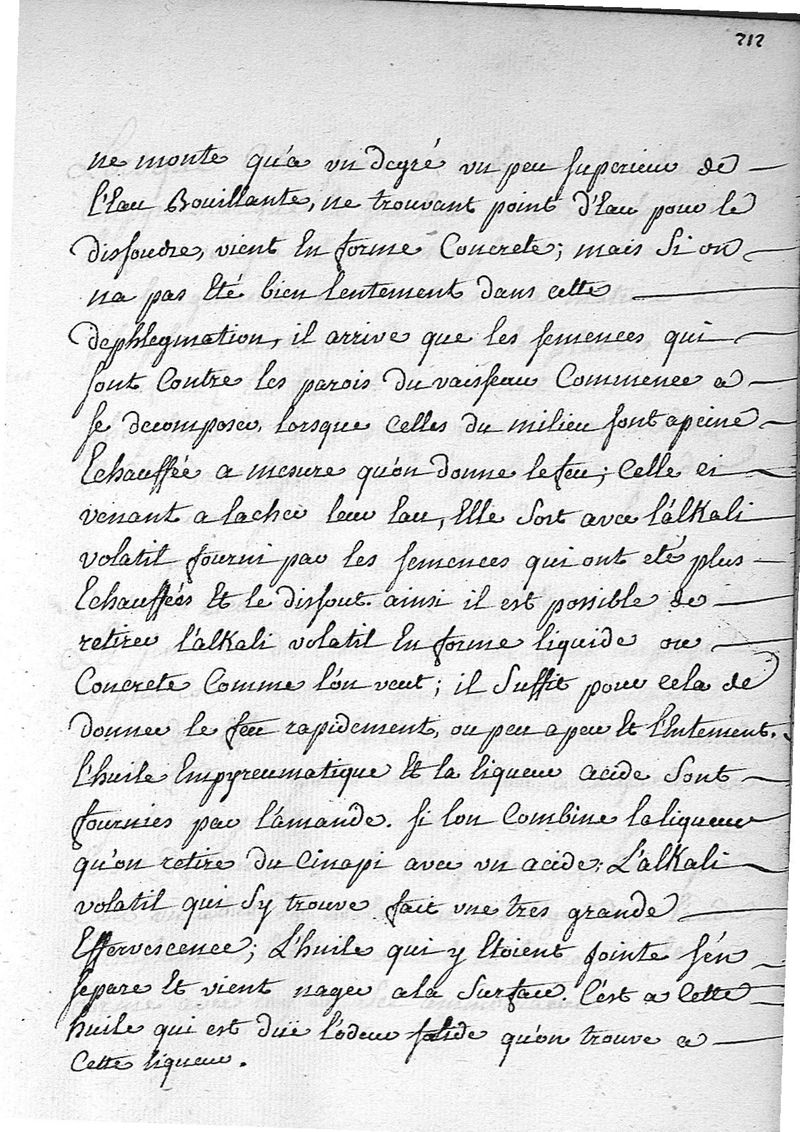 212
ne monte qu'a un degré un peu superieur de
l'Eau Bouillante, ne trouvant point d'Eau pour le
dissoudre, vient En forme Concrete; mais Si on
na pas Eté bien lentement dans cette
dephlegmation, il arrive que les semences qui
sont Contre les parois du vaisseau Commence a
se decomposer, lorsque Celles du milieu sont apeine
Echauffée a mesure qu'on donne le feu; Celle ci
venant a lacher leur Eau, Elle Sort avec l'alkali
volatil fourni par les semences qui ont eté plus
Echauffées Et le dissout. ainsi il est possible de
retirer l'alkali volatil En forme liquide ou
Concrete Comme l'on veut; il Suffit pour cela de
donner le feu rapidement, ou peu a peu Et l'Entement.
l'huile Empyreumatique Et la liqueur acide Sont
fournies par l'amande. Si lon Combine la liqueur
qu'on retire du Cinapi avec un acide; L'alkali
volatil qui Sy trouve fait une tres grande
Effervescence; L'huile qui y Etoient jointe s'én
separe Et vient nager a la Surface. C'est a Cette
huile qui est duë l'odeur qu'on trouve a
Cette liqueur.